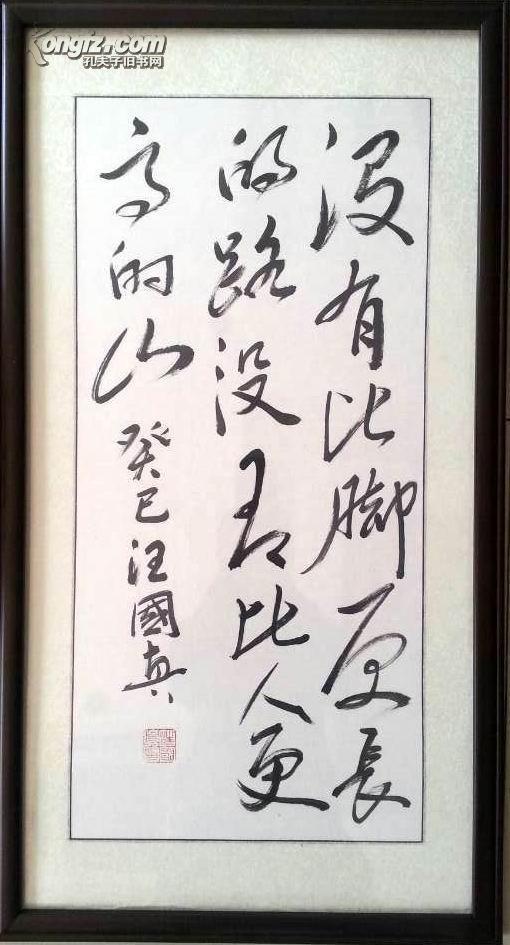 Kongfz.com
孔夫子旧书网
没有比脚更长
的路没有比人更
高的山
癸巳汪國真